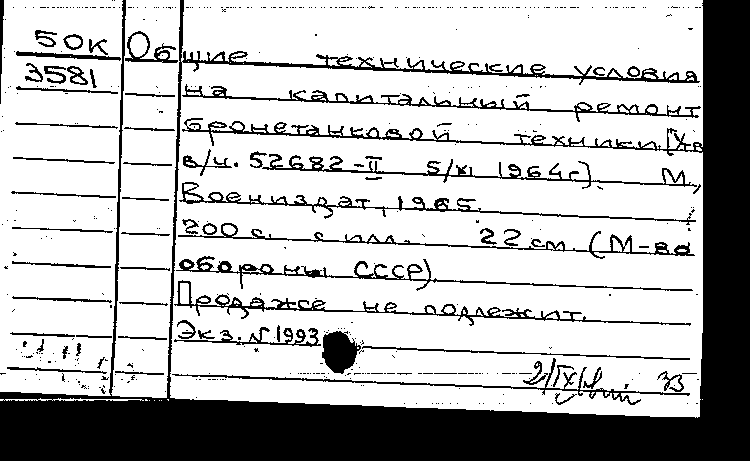 50К Общие технические условия
3581 на капитальный ремонт
бронетанковой техники. [Утв.
в/ч. 52682-II 5/XI 1964г]. М.,
Воениздат, 1965.
200 с. с илл. 22 см (М-во
обороны СССР).
Продаже не подлежит.
Экз. № 1993
2/IX 33